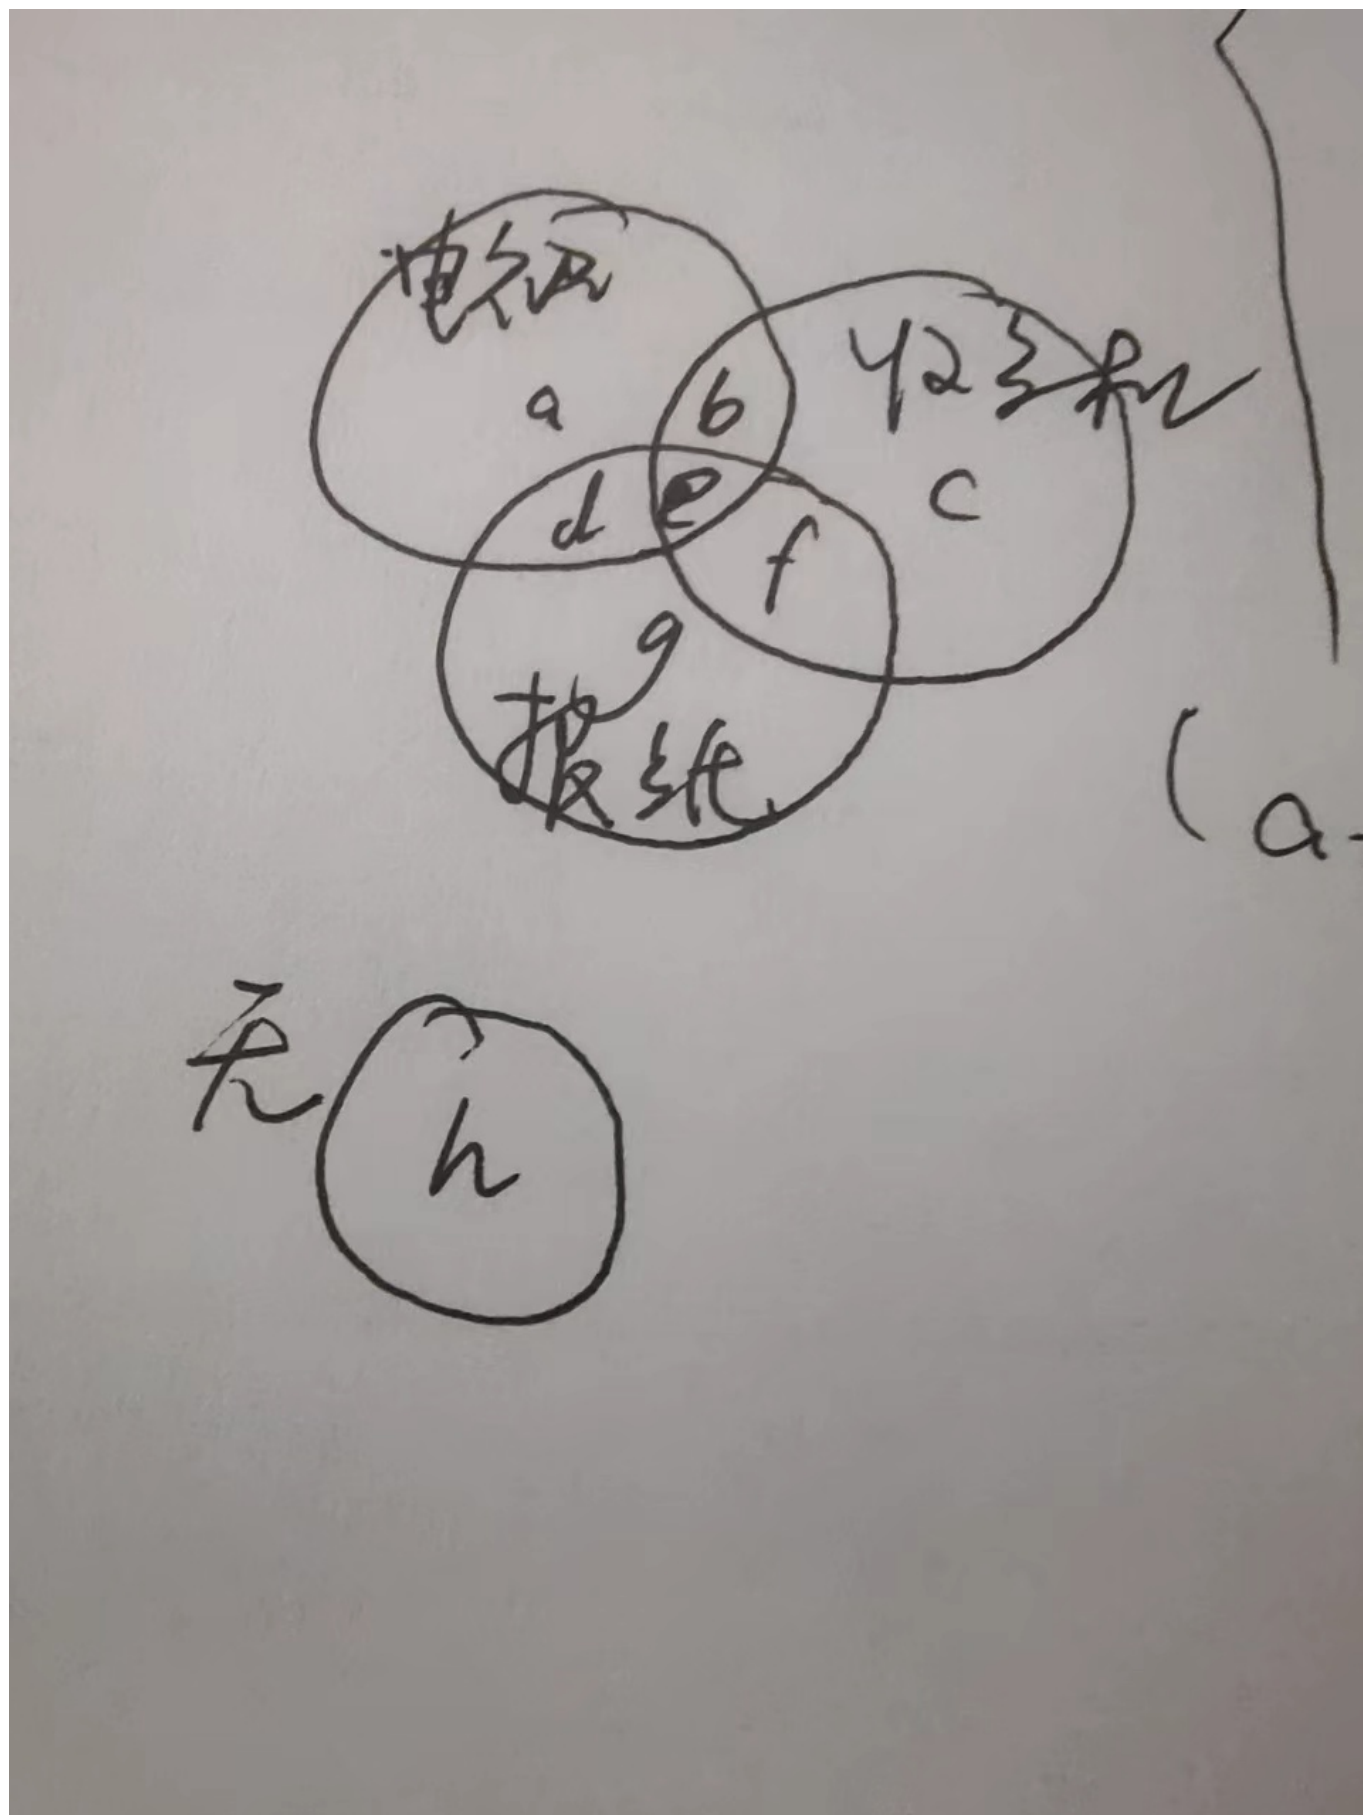 电视
收音机
a
b
c
d
e
f
g
报纸
(a-
无
h